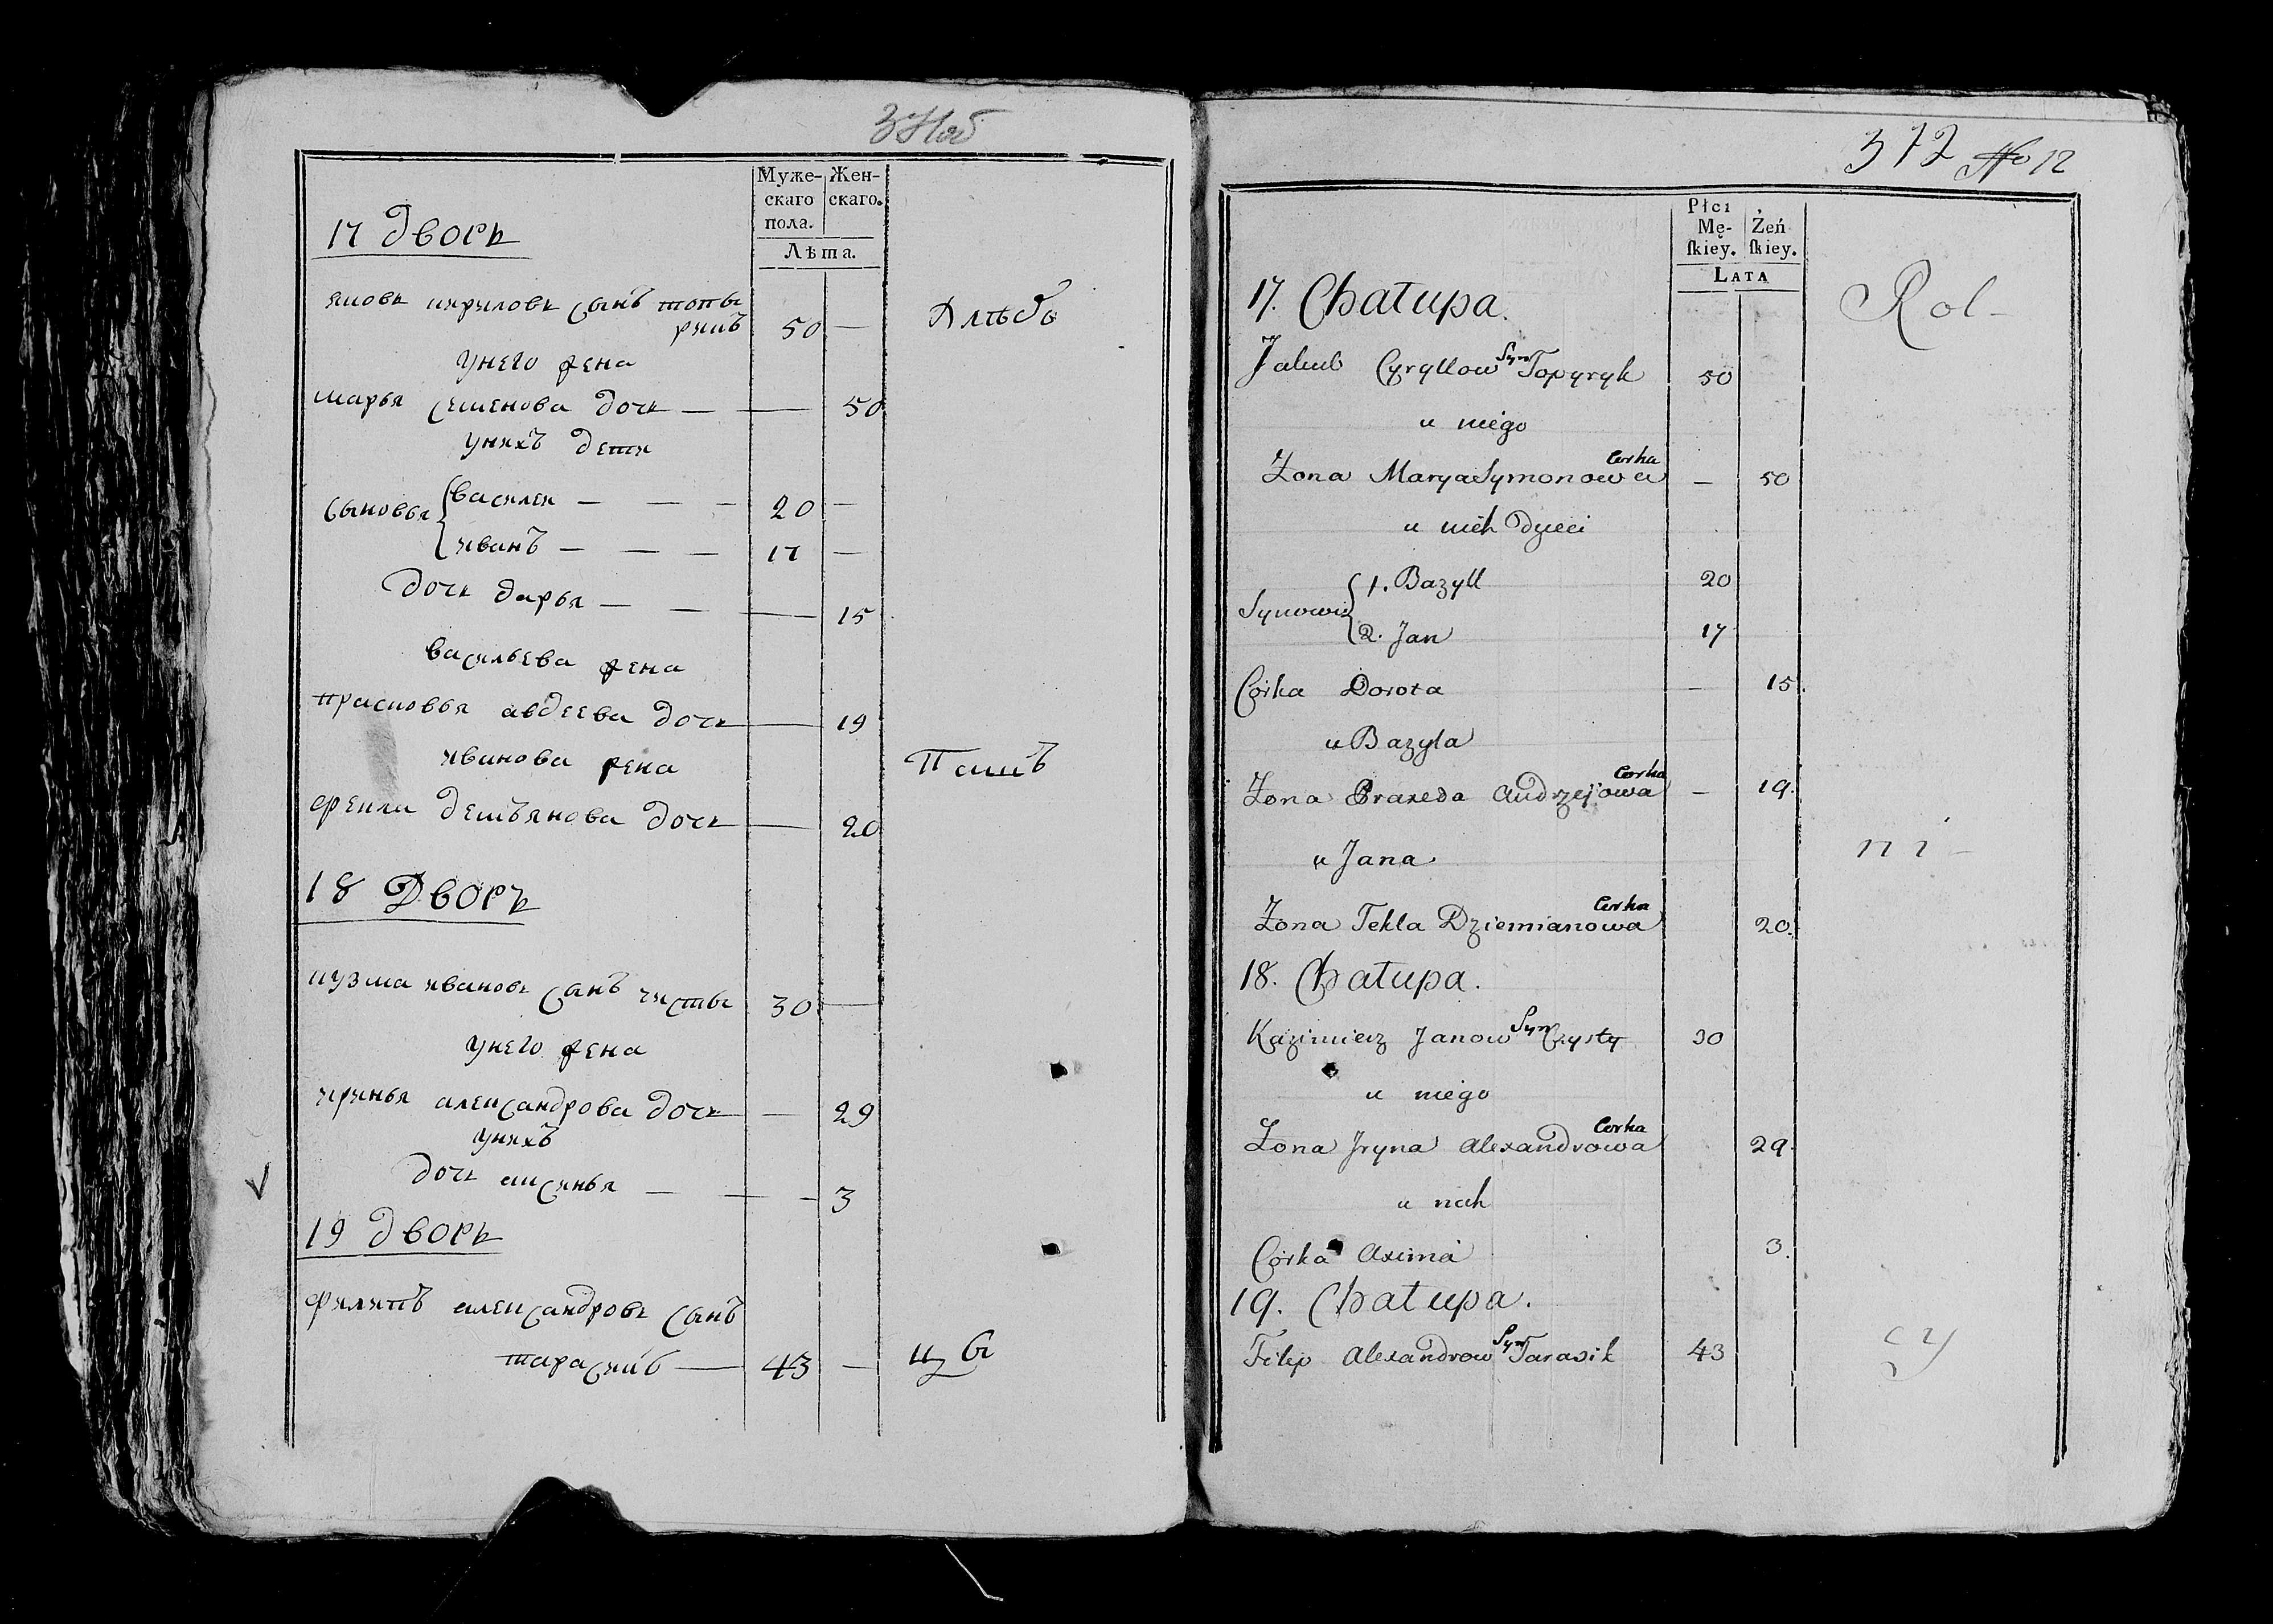 Муже-
скаго
пола.
Жен-
скаго.
Лѣта.
17 дворъ
яковъ кириловъ сынъ топы
рикъ 50 —
унего жена
марья семенова дочь — — 50
унихъ дети
сыновья
василеи — — — 20 —
иванъ — — — 17 —
дочь дарья — — — 15
васильева жена
прасковья авдеева дочь — 19
иванова жена
фекла демъянова дочь — 20
18 Дворъ
кузма ивановъ сынъ чисты 30 —
унего жена
иринья александрова дочь — 29
унихъ
дочь аксинья — — — 3
19 дворъ
филипъ александровъ сынъ
тарасикъ — 43 —
372 No 12
Płci
Mę-
ſkiey.
Żeń
ſkiey.
LATA
17. Chatupa.
Rol-
Jakub Cyryllow Syn Topyryk 50
u niego
Zona Marya Symonowa Corka — 50
u nich Dzieci
Synowie
1. Bazyll 20
2. Jan 17
Corka Dorota — 15.
u Bazyla
Zona Praxeda Andrzejowa Corka — 19.
u Jana
ni-
Zona Tekla Dziemianowa Corka 20.
18. Chatupa.
Kazimierz Janow Syn Czysty 30
u niego
Zona Jryna Alexandrowa Corka 29.
u nich
Corka Axima 3.
19. Chatupa.
Filip Alexandrow Syn Tarasik 43
cy